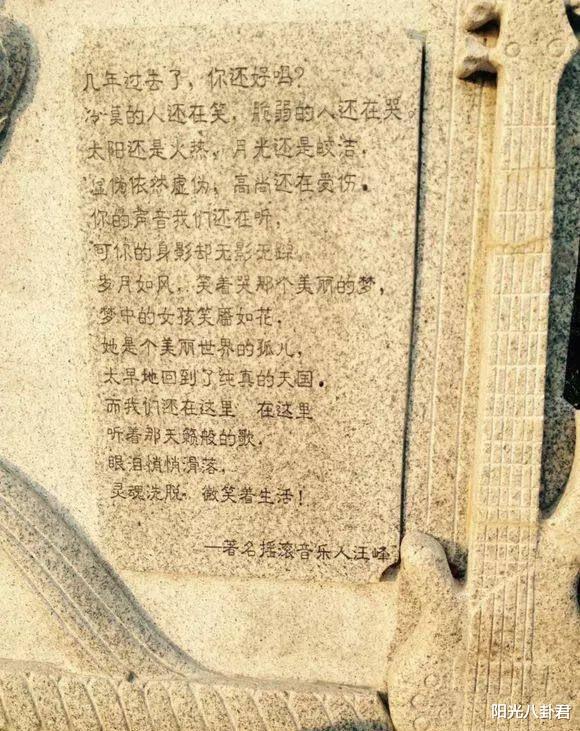 几年过去了，你还好吗？
冷漠的人还在笑，脆弱的人还在哭。
太阳还是火热，月光还是皎洁，
虚伪依然虚伪，高尚还在受伤。
你的声音我们还在听，
可你的身影却无影无踪。
岁月如风，笑着哭那个美丽的梦，
梦中的女孩笑靥如花，
她是个美丽世界的孤儿，
太早地回到了纯真的天国。
而我们还在这里 在这里
听着那天籁般的歌，
眼泪悄悄滑落，
灵魂洗脱，微笑着生活！
—著名摇滚音乐人汪峰
阳光八卦君